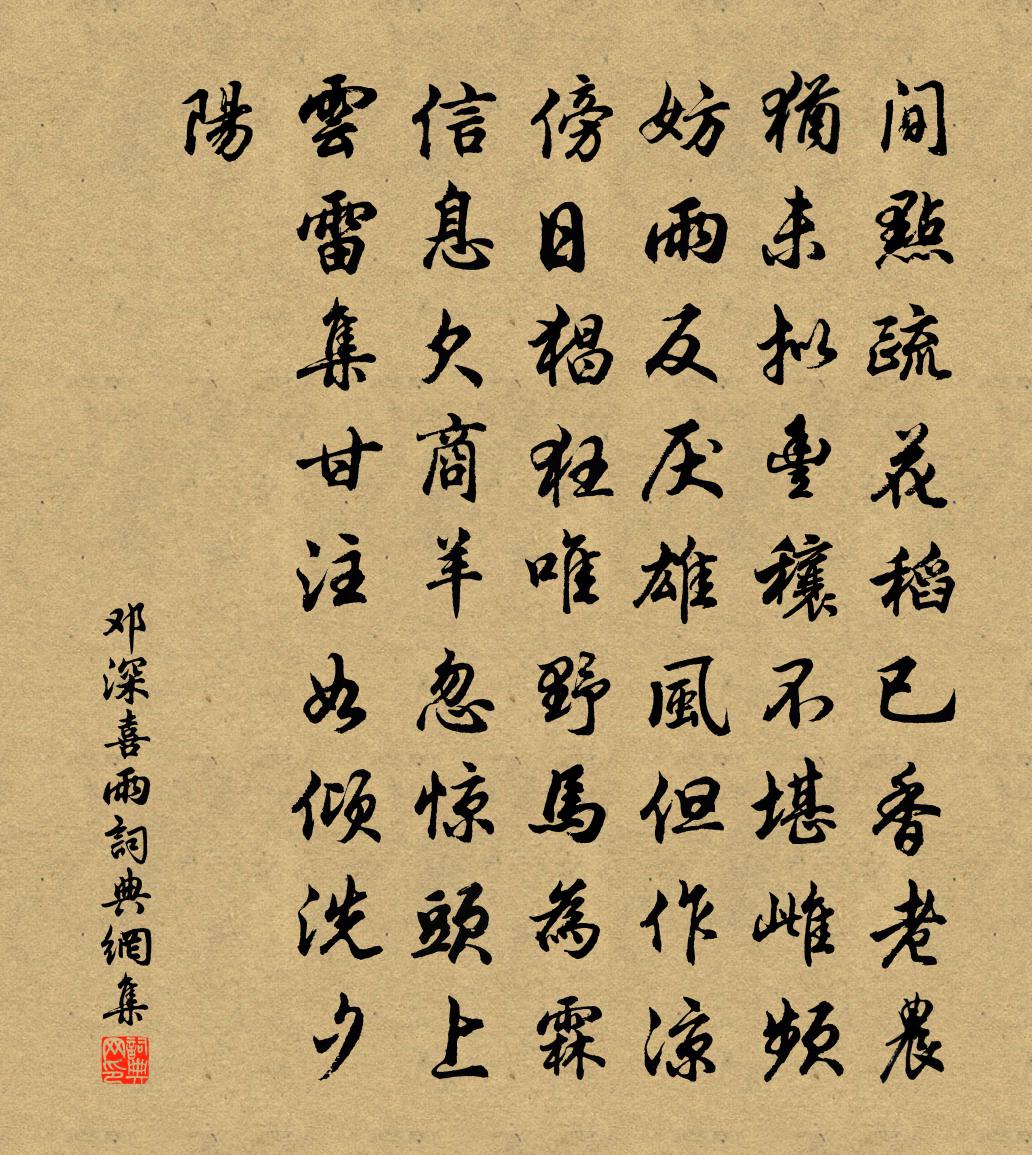 間點疏花稻已香老農
猶未拟豐穰不堪雌頻
妨雨反厌雄風但作涼
傍日猖狂唯野馬為霖
信息欠商羊忽惊頭上
雲雷集甘注如傾洗夕
陽
邓深喜雨詞典網集
詞典网印